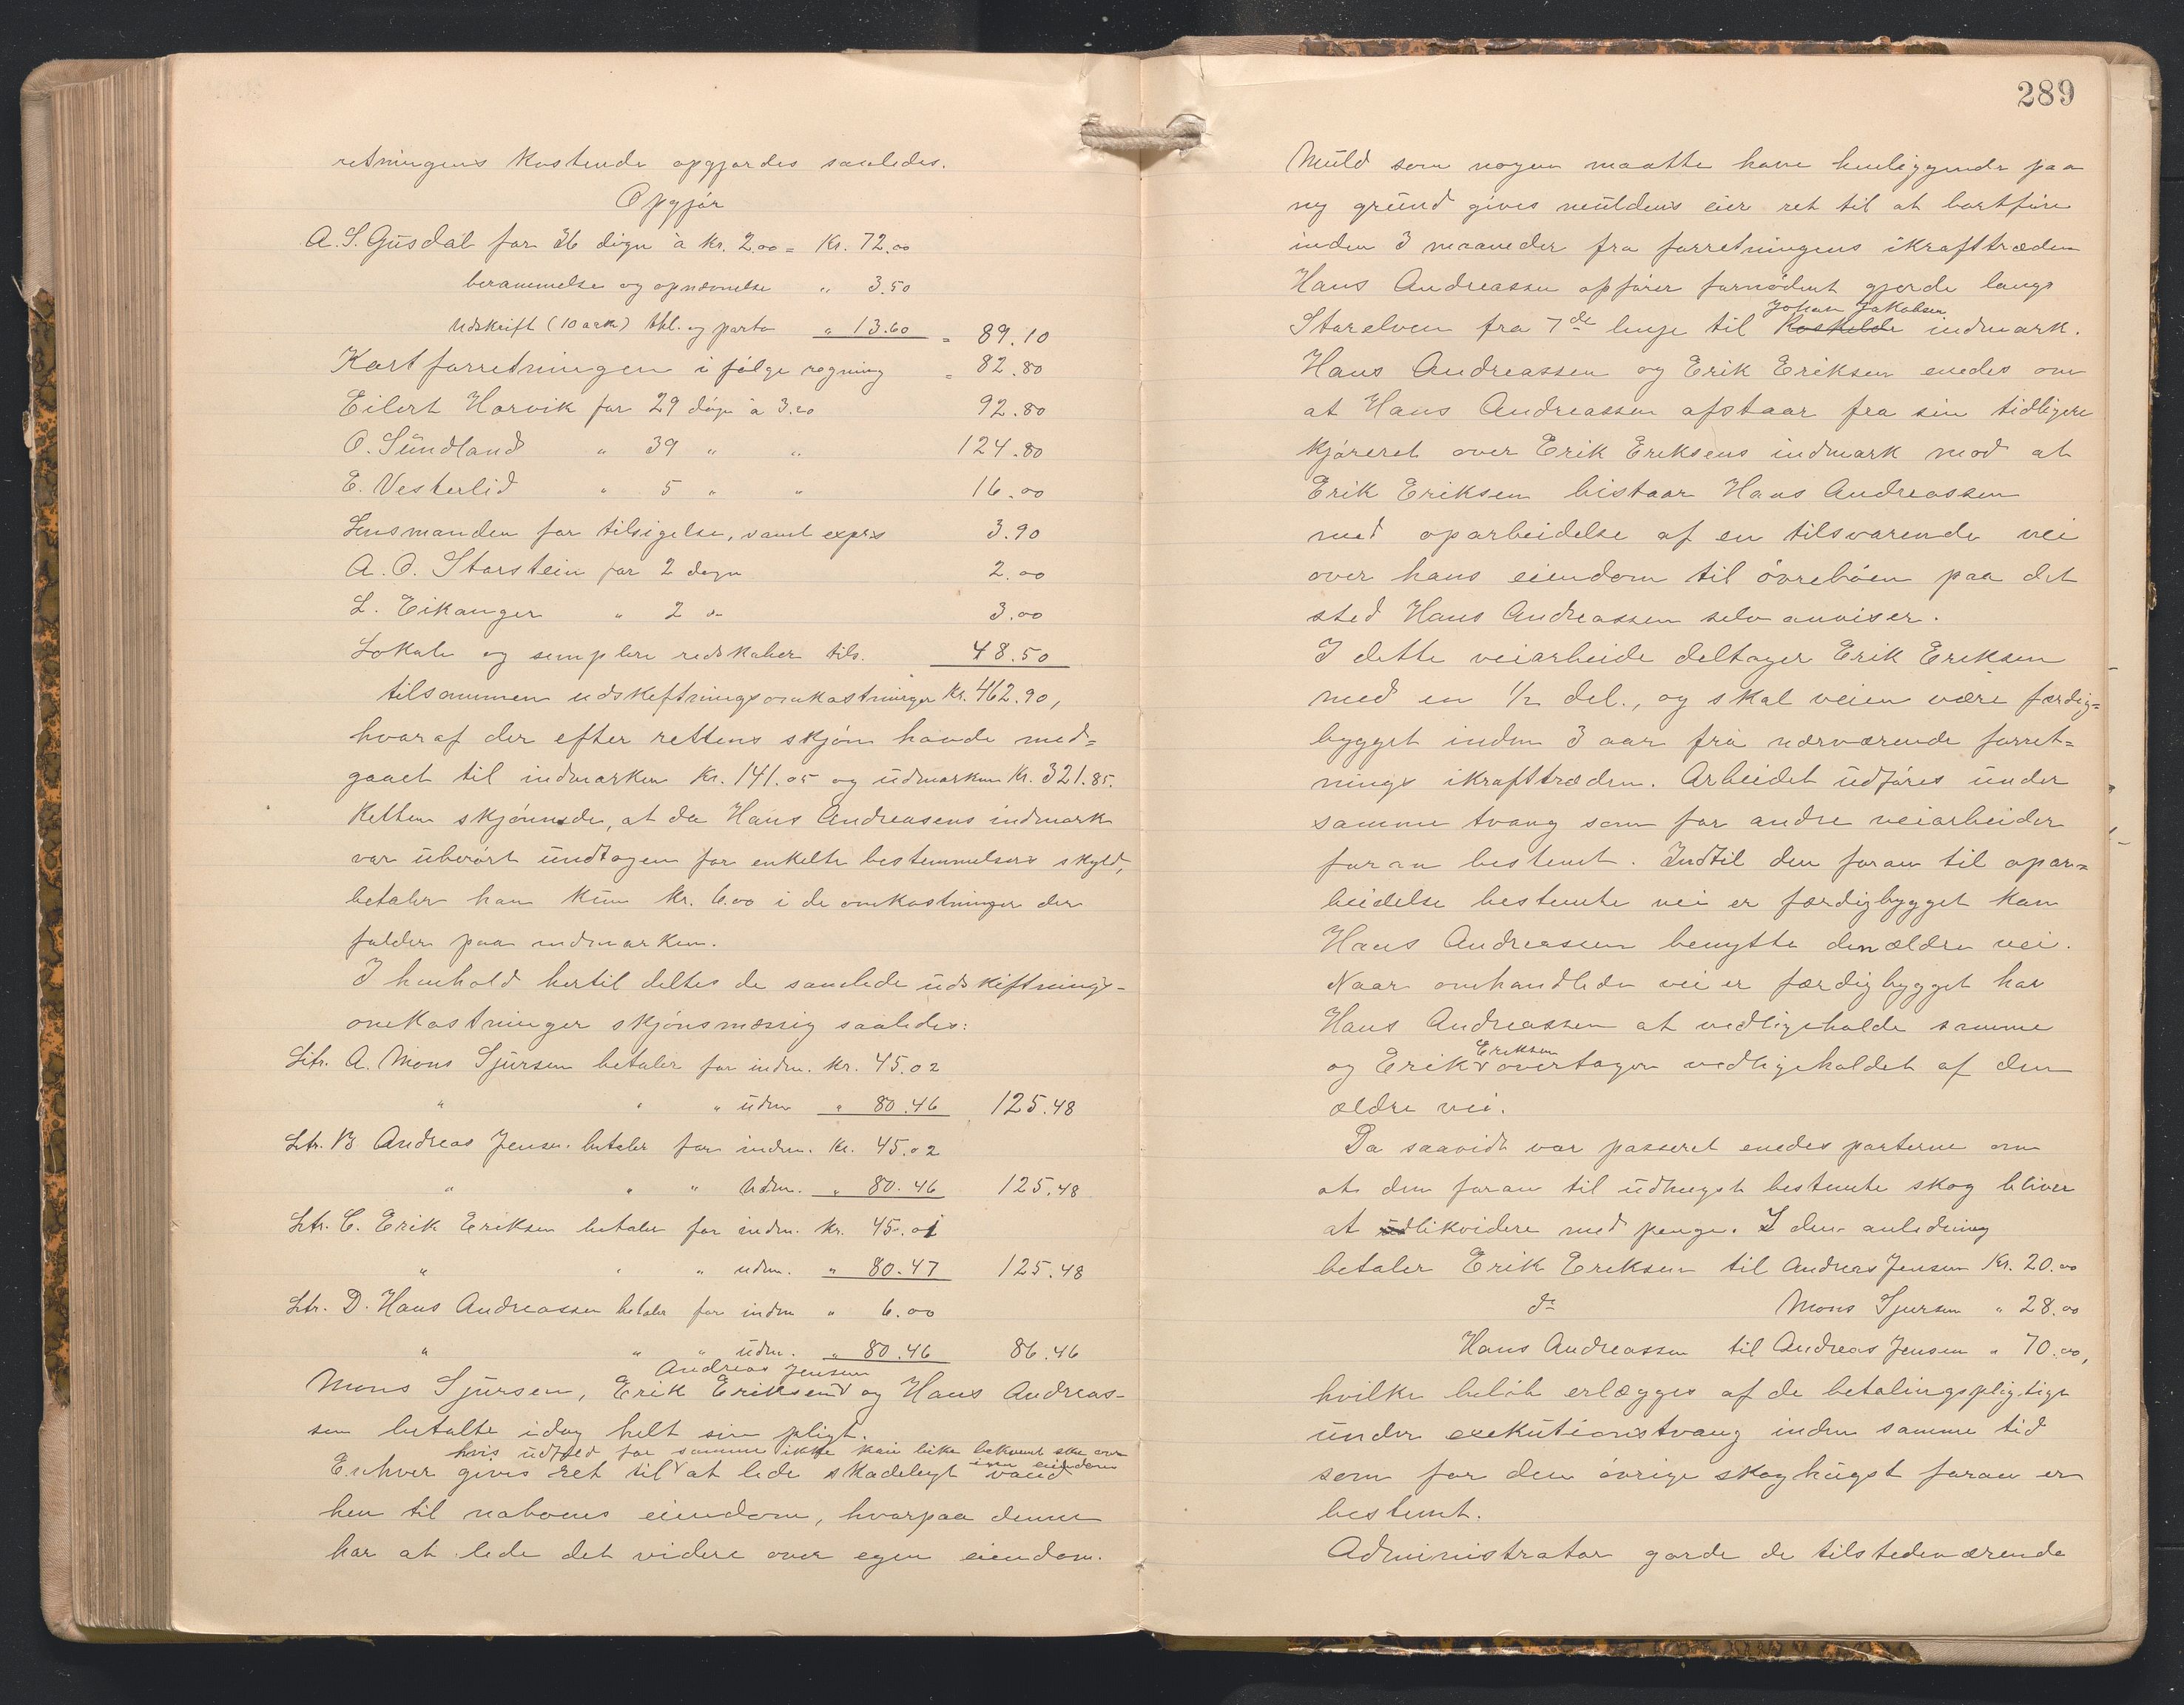 retningens kostende opgjordes saaledes.
Opgjør
A. S. Gusdal for 36 døgn à kr. 2.00 = Kr. 72.00
berammelse og opnævnelse " 3.50
Udskrift (10 ark) thl. og porto " 13.60 = 89.10
Kartforretningen i følge regning = 82.80
Eilert Horvik for 29 døgn à 3.20 92.80
O. Sundland " 39 " " 124.80
E. Vesterlid " 5 " " 16.00
Lensmanden for tilsigelse, samt expres 3.90
A. O. Storstein for 2 døgn 2.00
L. Eikanger " 2 " 3.00
Lokale og simplere redskaber tils. 48.50
tilsammen udskiftningsomkostninger Kr. 462.90,
hvoraf der efter rettens skjøn havde med-
gaaet til indmarken Kr. 141.05 og udmarken Kr. 321.85.
Retten skjønnede, at da Hans Andreasens indmark
var uberørt undtagen for enkelte bestemmelsers skyld,
betaler han kun kr. 6.00 i de omkostninger der
falder paa indmarken.
I henhold hertil deltes de samlede udskiftnings-
omkostninger skjønsmæssig saaledes:
Litr. A. Mons Sjursen betaler for indm. kr. 45.02
" " " udm " 80.46 125.48
Litr. B Andreas Jensen betaler for indm. Kr. 45.02
" " " Udm. " 80.46 125.48
Litr. C. Erik Eriksen betaler for indm. Kr. 45.01
" " " udm. " 80.47 125.48
Litr. D. Hans Andreassen betaler for indm " 6.00
" " " udm. " 80.46 86.46
Andreas Jensen
Mons Sjursen, Erik Eriksen og Hans Andreas-
sen betalte idag helt sin pligt.
hvis udfled for samme ikke kan like bekvemt ske over
inn eiendom
Enhver gives ret til at lede skadeligt vand
hen til naboens eiendom, hvorpaa denne
har at lede det videre over egen eiendom.
289
Muld som nogen maatte have henliggende paa
ny grund gives muldens eier ret til at bortføre
inden 3 maaneder fra forretningens ikrafttræden
Hans Andreassen opfører fornødent gjerde langs
Johan Jakobsen
Storelven fra 7de linje til Rostilde indmark.
Hans Andreassen og Erik Eriksen enedes om
at Hans Andreassen afstaar fra sin tidligere
kjøreret over Erik Eriksens indmark mod at
Erik Eriksen bistaar Hans Andreassen
med oparbeidelse af en tilsvarende vei
over hans eiendom til øvrebøen paa det
sted Hans Andreassen selv anviser.
I dette veiarbeide deltager Erik Eriksen
med en 1/2 del., og skal veien være færdig-
bygget inden 3 aar fra nærværende forret-
nings ikrafttræden. Arbeidet udføres under
samme tvang som for andre veiarbeider
foran bestemt. Indtil den foran til opar-
beidelse bestemte vei er færdigbygget kan
Hans Andreassen benytte den ældre vei.
Naar omhandlede vei er færdigbygget har
Hans Andreassen at vedligeholde samme
Eriksen
og Erik overtager vedligeholdet af den
ældre vei.
Da saavidt var passeret enedes parterne om
at den foran til udhugst bestemte skog bliver
at udlikvidere med penge. I den anledning
betaler Erik Eriksen til Andreas Jensen Kr. 20.00
do Mons Sjursen " 28.00
Hans Andreassen til Andreas Jensen " 70.00,
hvilke beløb erlægges af de betalingspligtige
under exekutionstvang inden samme tid
som for den øvrige skoghugst foran er
bestemt.
Administrator gjorde de tilstedeværende